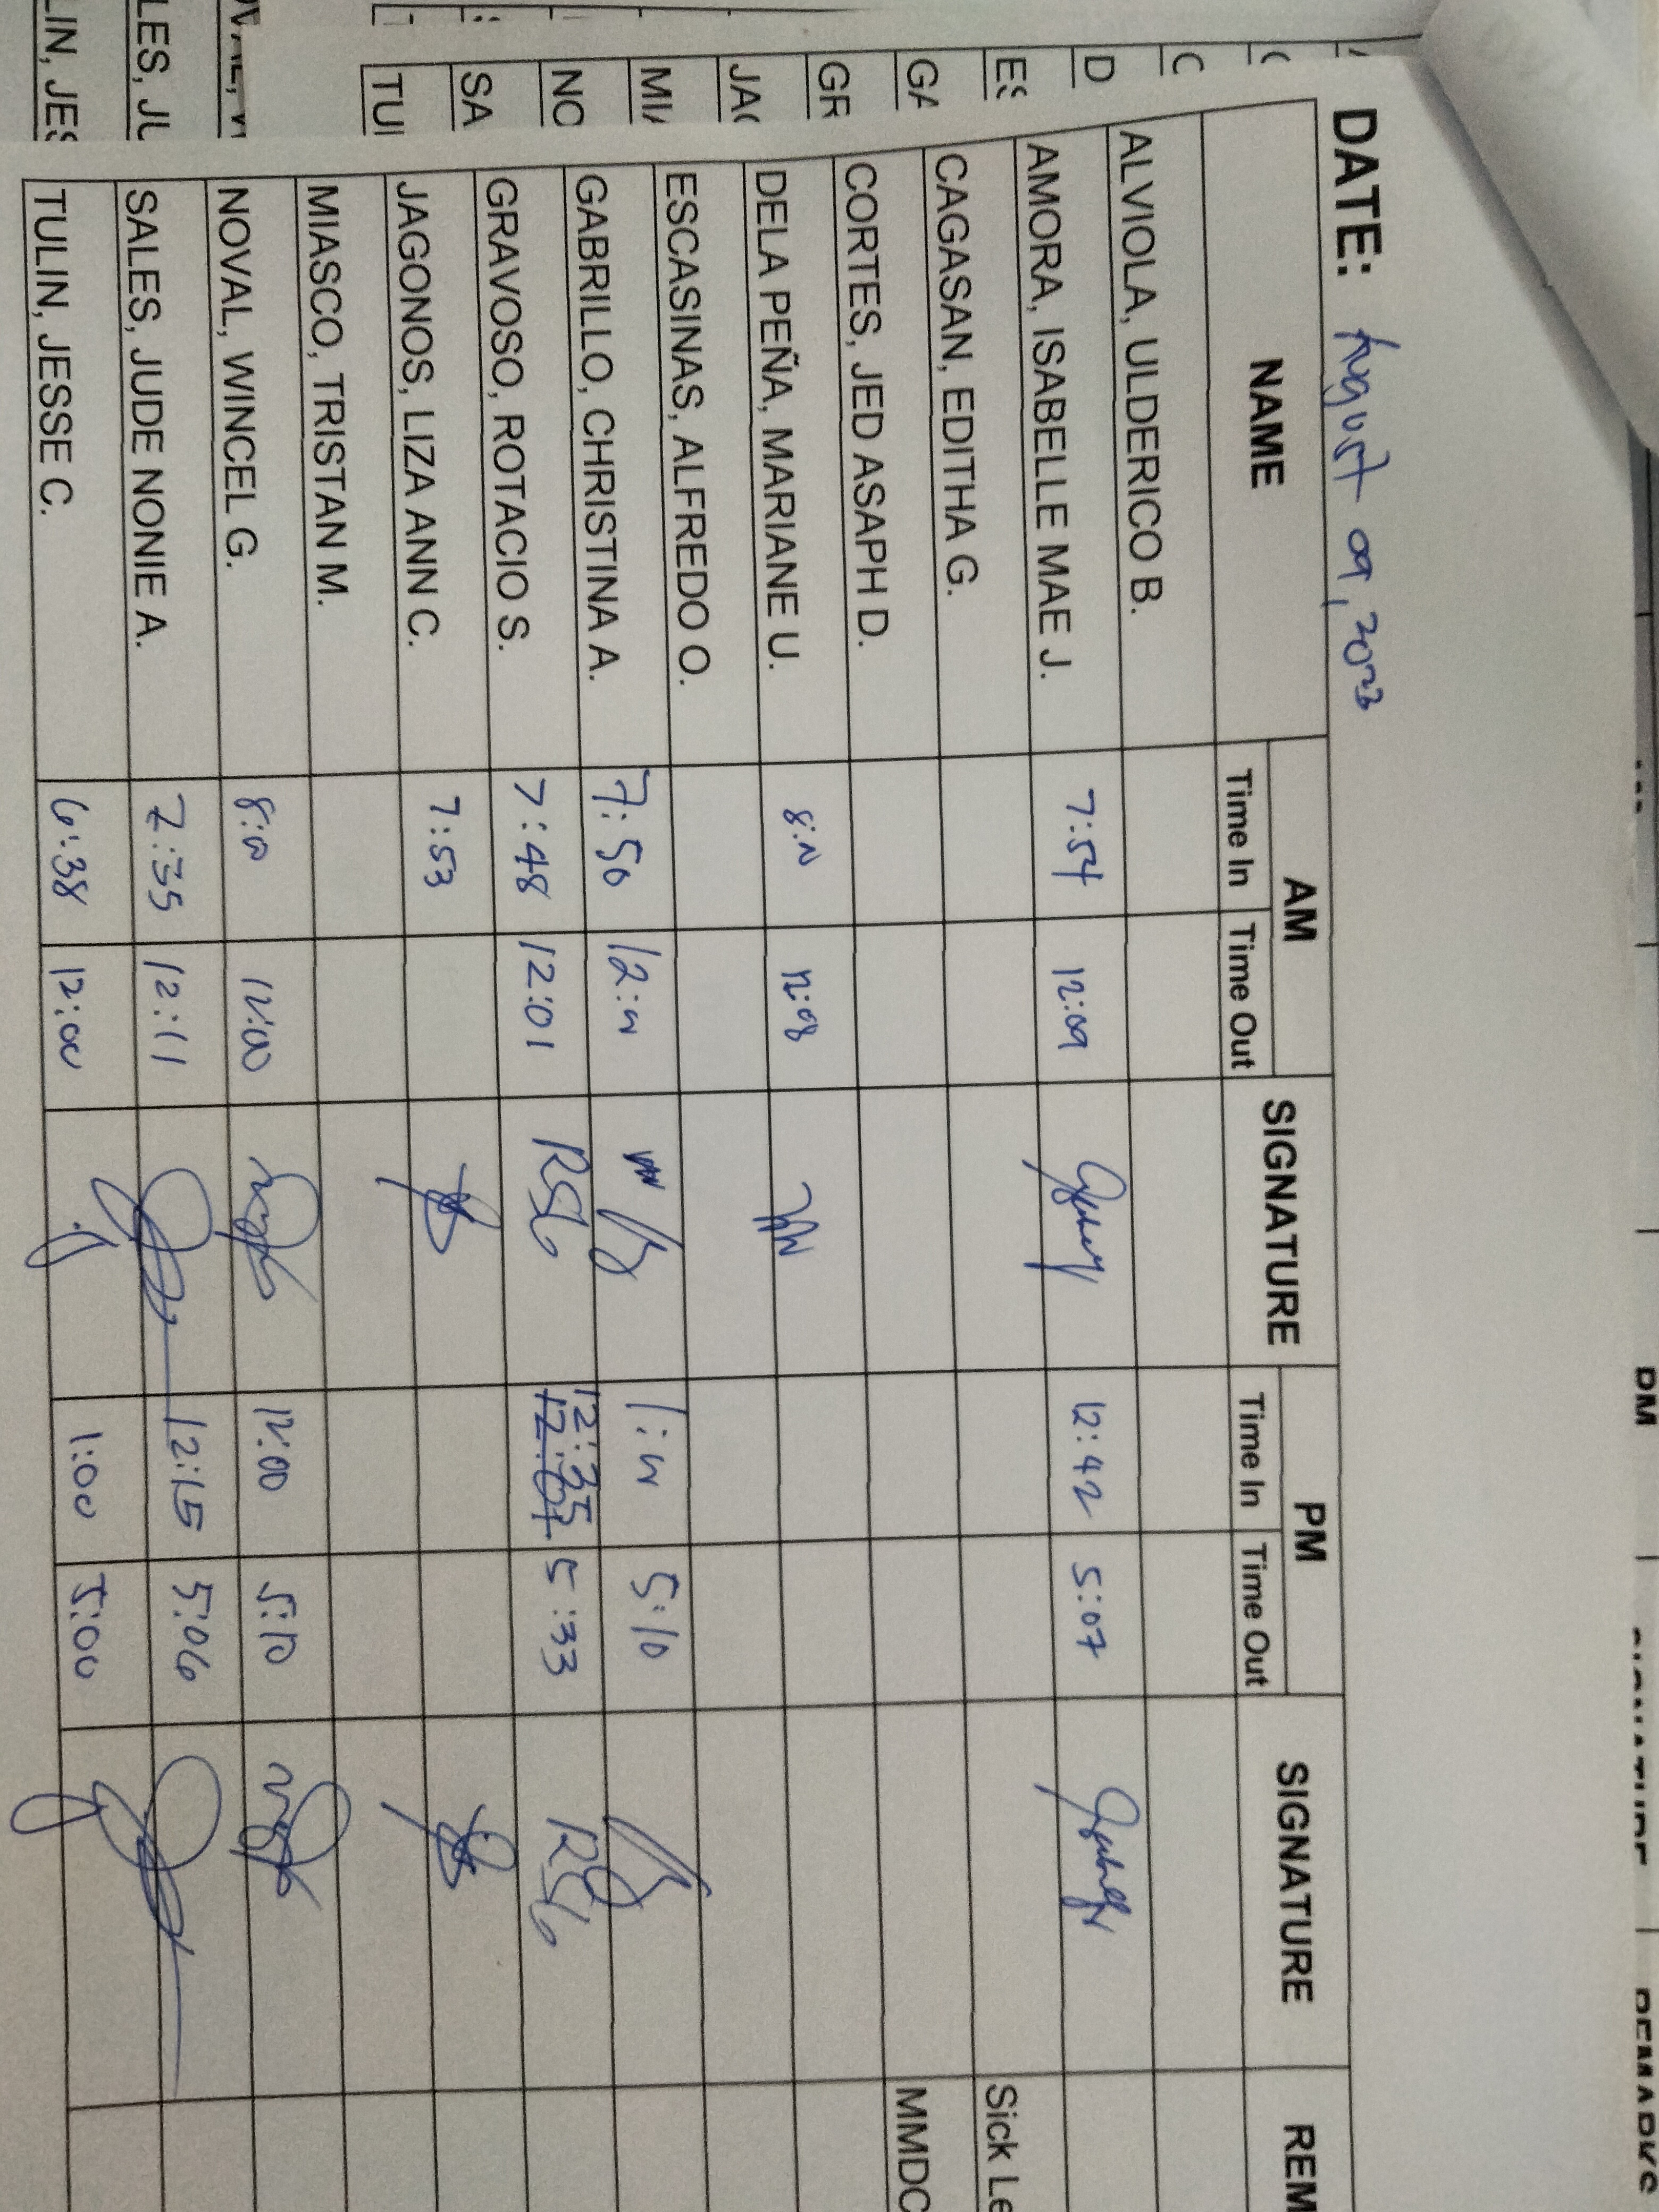 DATE: August 09, 2023
NAME AM SIGNATURE PM SIGNATURE REM
Time In Time Out Time In Time Out
ALVIOLA, ULDERICO B.
AMORA, ISABELLE MAE J. 7:54 12:09 12:42 5:07
CAGASAN, EDITHA G. Sick Le
CORTES, JED ASAPH D. MMDC
DELA PEÑA, MARIANE U. 12:08
ESCASINAS, ALFREDO O.
GABRILLO, CHRISTINA A. 7:50 5:10
GRAVOSO, ROTACIO S. 7:48 12:01 RSG 12:35 5:33 RSG
JAGONOS, LIZA ANN C. 7:53
MIASCO, TRISTAN M.
NOVAL, WINCEL G. 8:00 12:00 12:00 5:10
SALES, JUDE NONIE A. 7:35 12:11 12:15 5:06
TULIN, JESSE C. 6:38 12:00 1:00 5:00
D
ES
GA
GR
JA
MIA
NO
SA
TUI
LES, JU
LIN, JES
PM
SIGNATURE
REMARKS